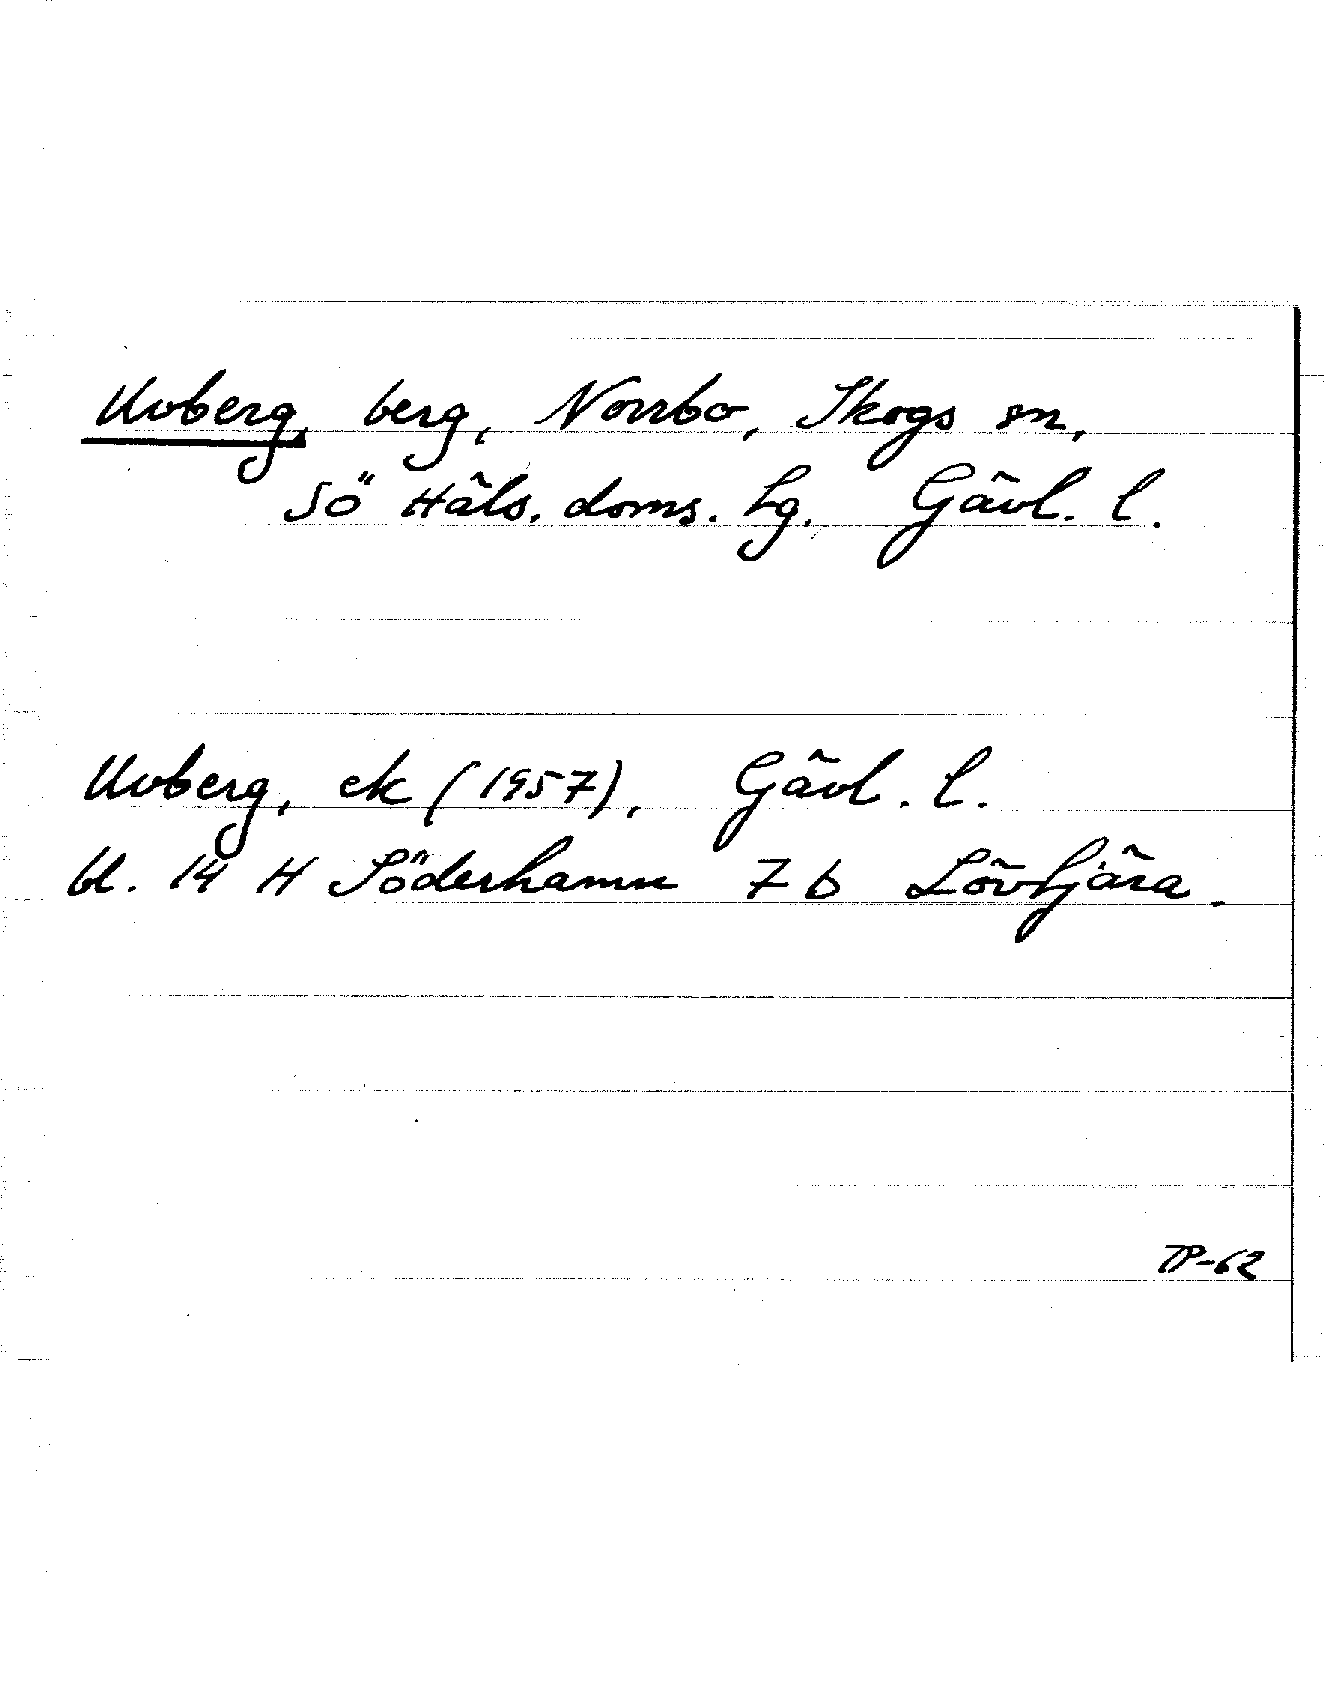 Uvberg, berg, Norrbo, Skogs sn,
Sö Häls. doms. lg. Gävl. l.
Uvberg, ek (1957), Gävl. l.
bl. 14 H Söderhamn 7 b Lövtjära.
TP-62